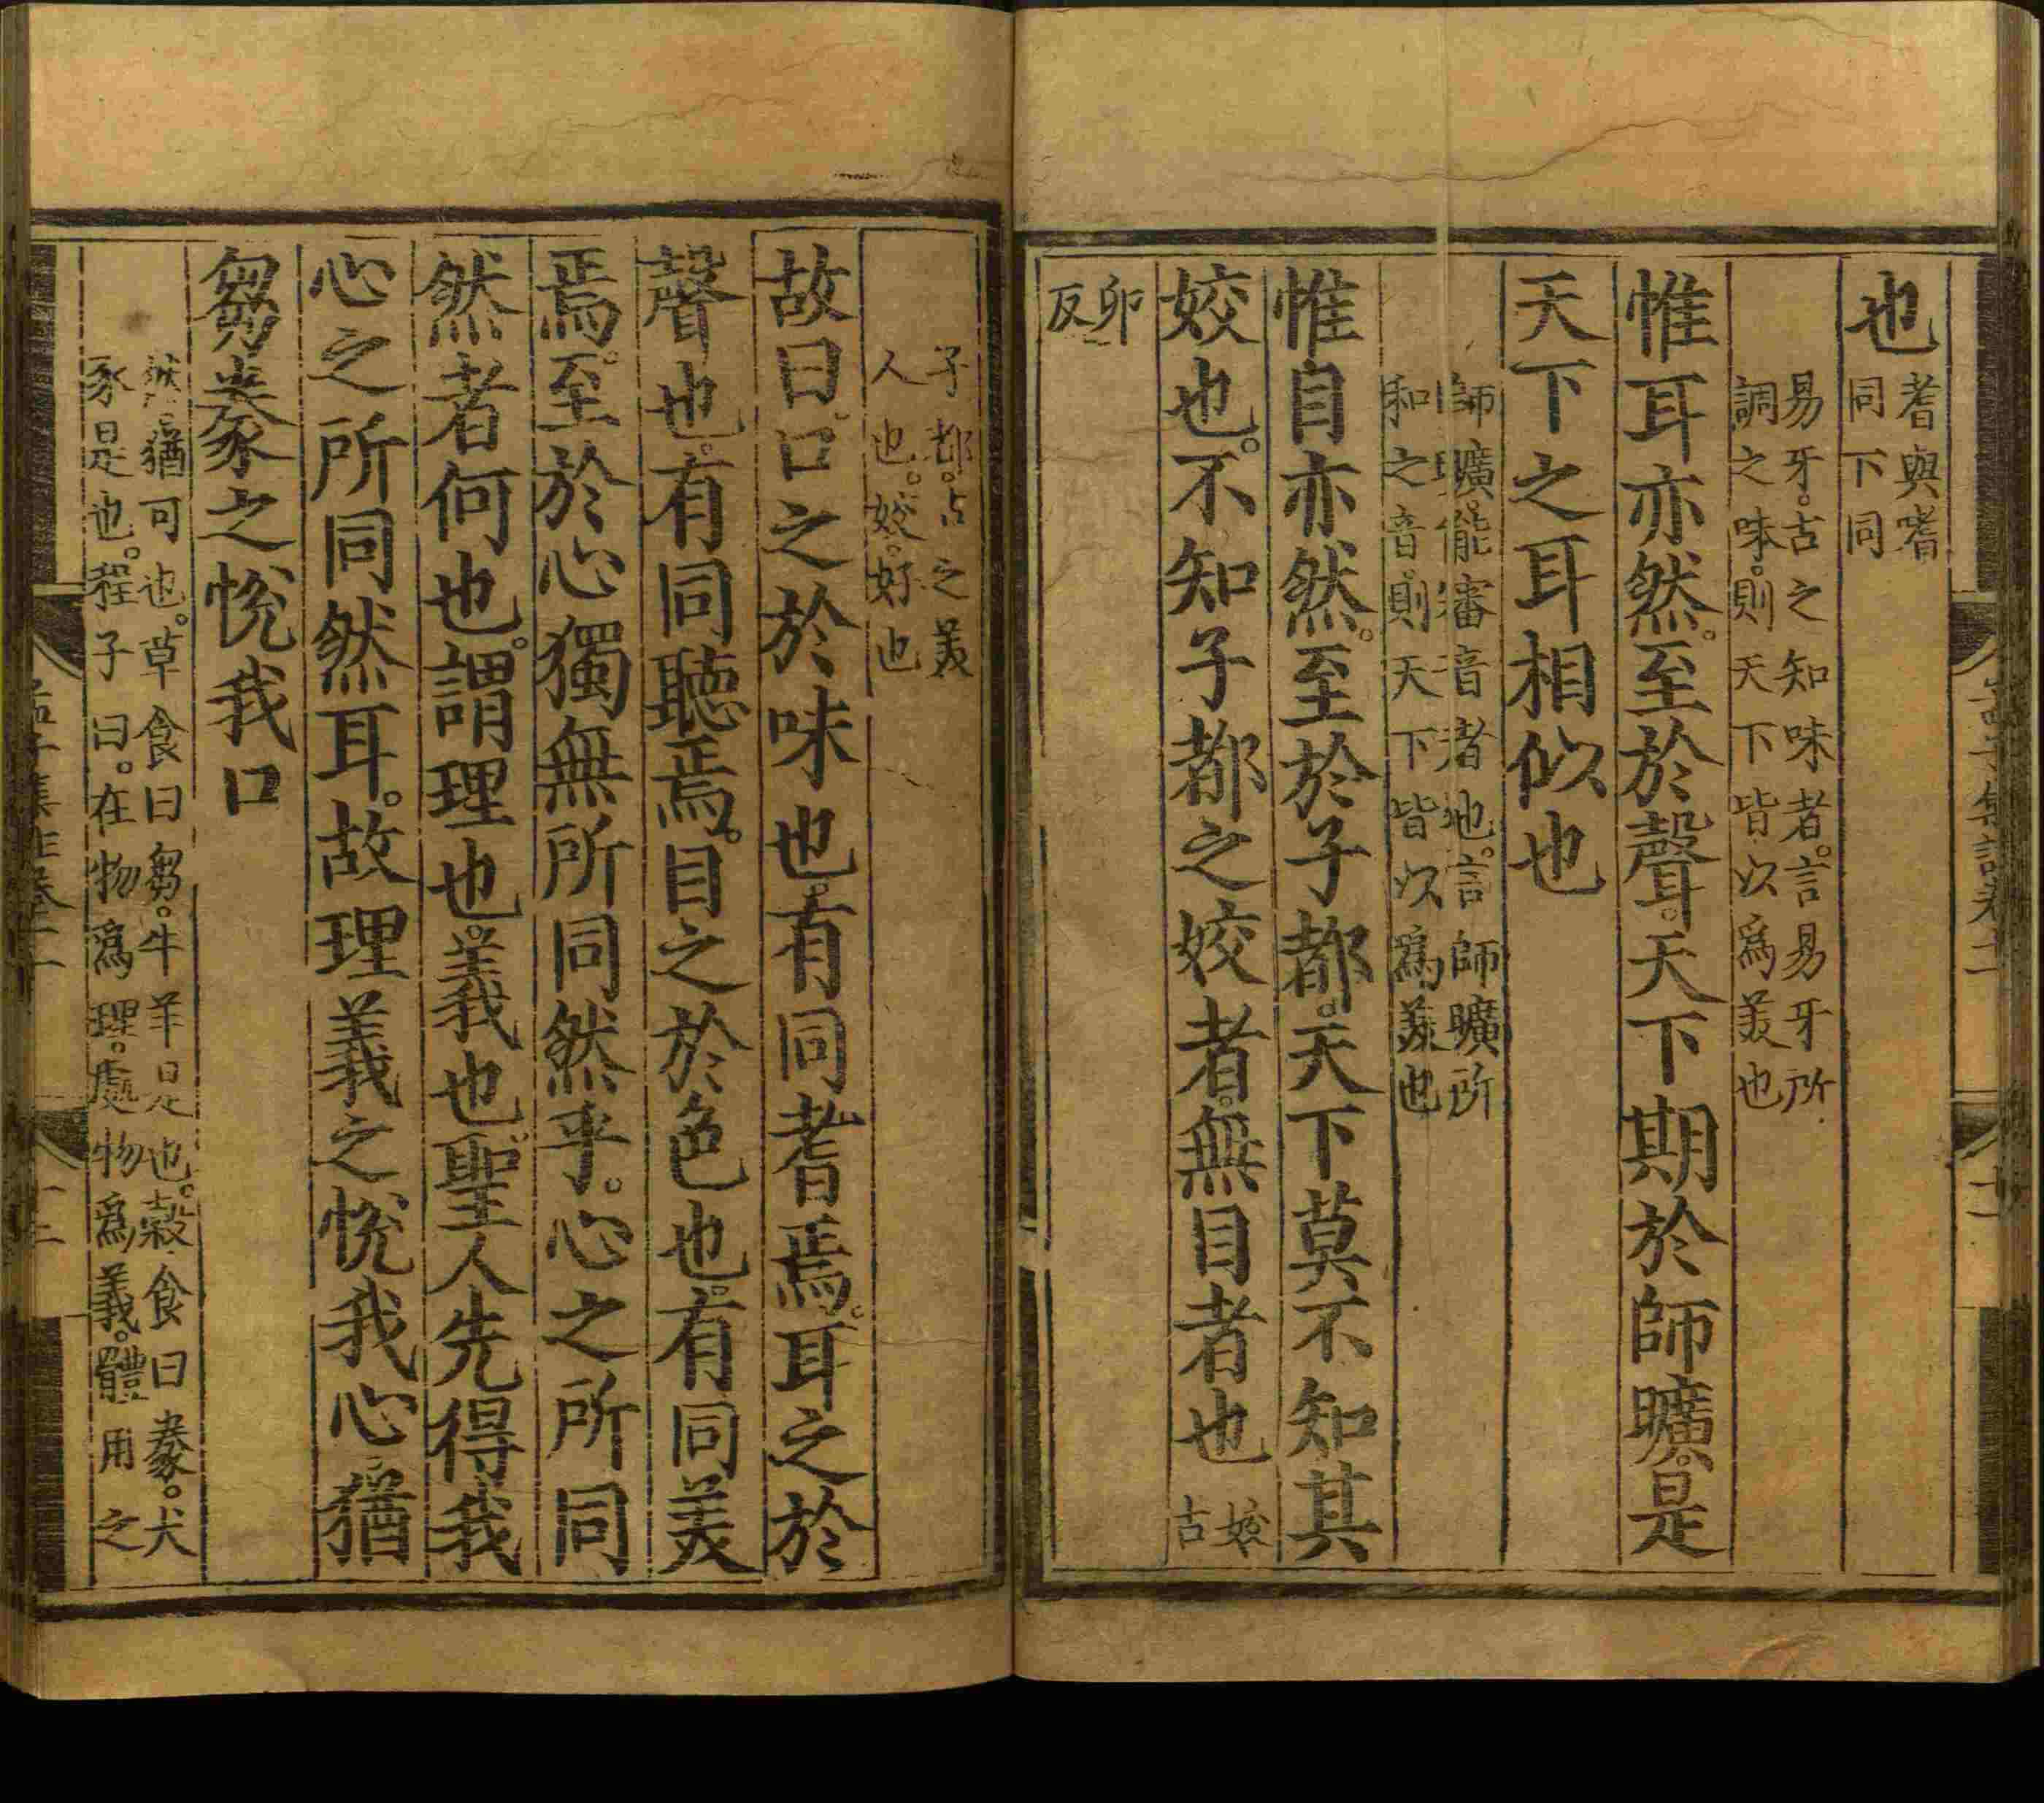 也
耆與嗜
同下同
易牙。古之知味者。言易牙所
調之味。則天下皆以爲美也
惟耳亦然。至於聲。天下期於師曠。是
天下之耳相似也
師曠。能審音者也。言師曠所
和之音。則天下皆以爲美也
惟目亦然。至於子都。天下莫不知其
姣也。不知子都之姣者。無目者也
姣
古
卯
反
子都。古之美
人也。姣。好也
故曰。口之於味也。有同耆焉。耳之於
聲也。有同聽焉。目之於色也。有同美
焉。至於心獨無所同然乎。心之所同
然者何也。謂理也。義也。聖人先得我
心之所同然耳。故理義之悅我心猶
芻豢之悅我口
猶可也。草食曰芻。牛羊是也。穀食曰豢。犬
豕是也。程子曰。在物爲理。處物爲義。體用之